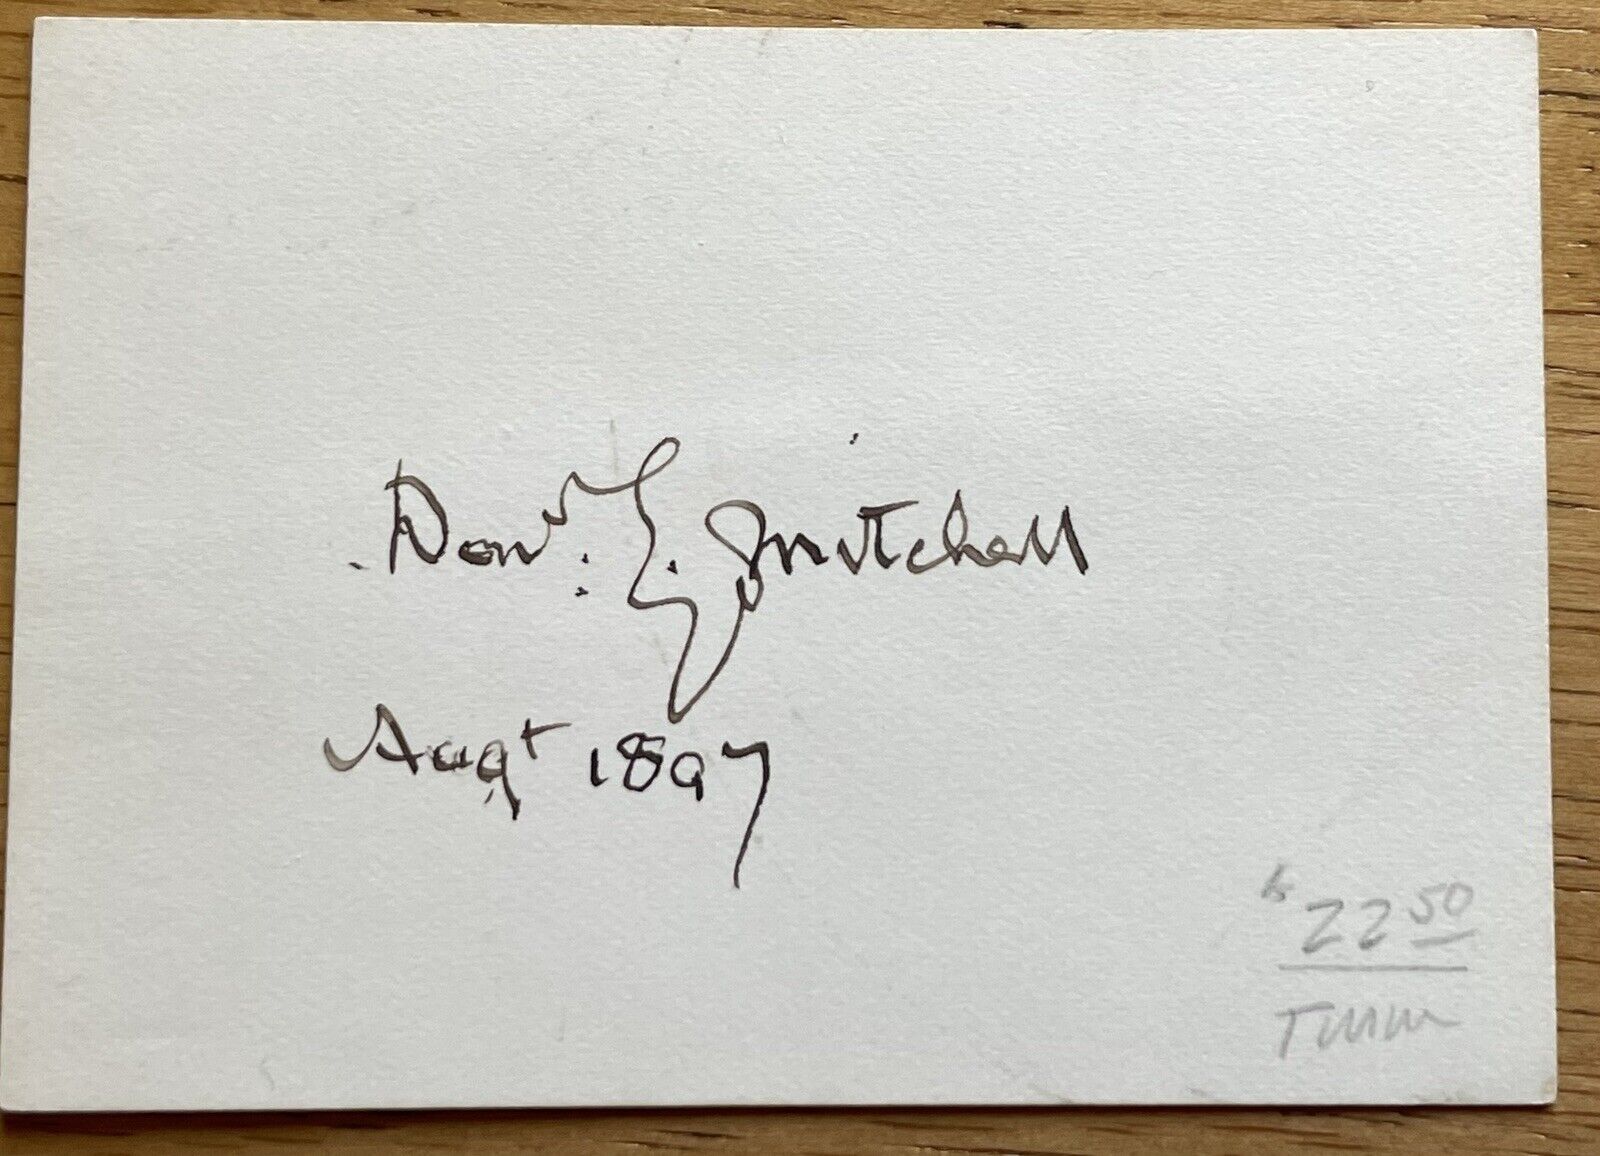 Don'. G. Mitchell
Augt 1897
22 50